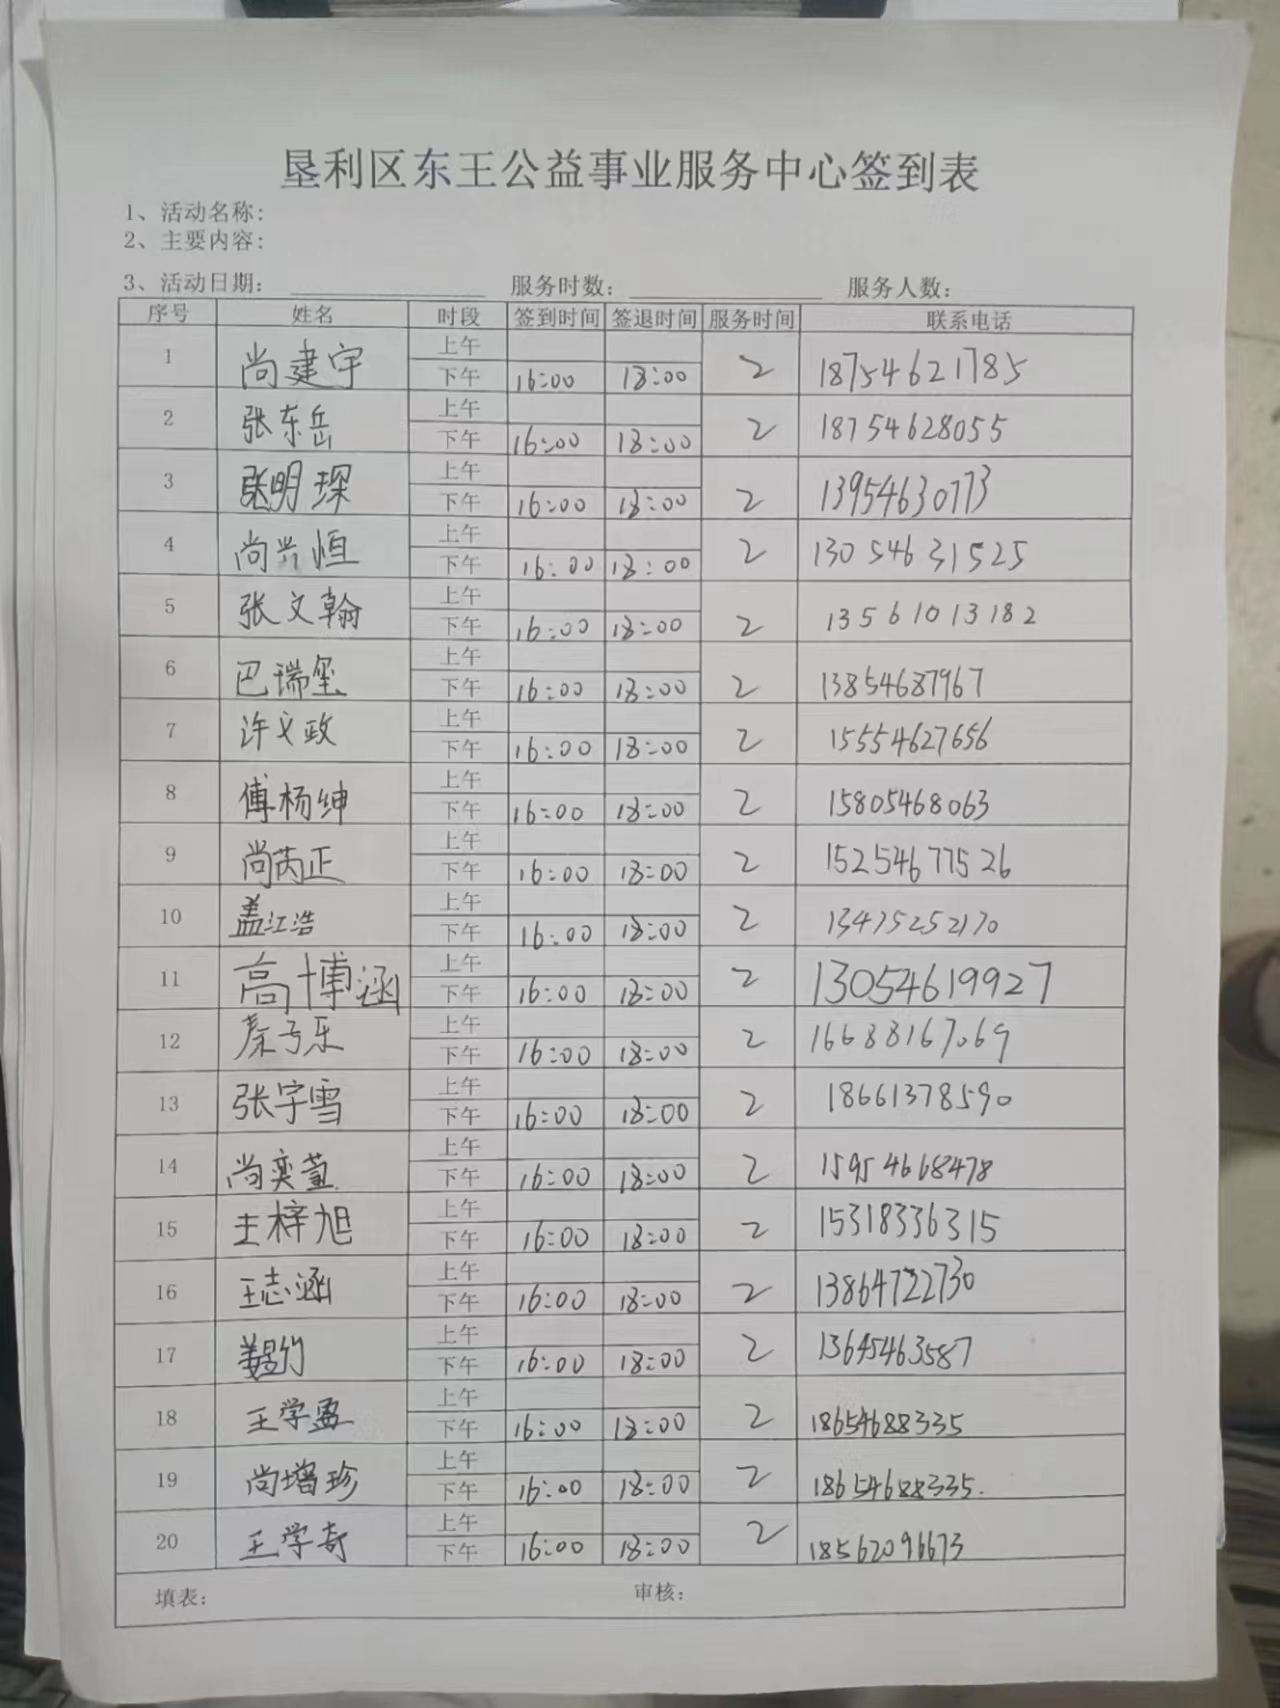 垦利区东王公益事业服务中心签到表
1、活动名称:
2、主要内容:
3、活动日期: 服务时数: 服务人数:
序号 姓名 时段 签到时间 签退时间 服务时间 联系电话
1 尚建宇 上午 下午 16:00 18:00 2 18754621785
2 张东岳 上午 下午 16:00 18:00 2 18754628055
3 张明琛 上午 下午 16:00 18:00 2 13954630773
4 尚兴恒 上午 下午 16:00 18:00 2 13054631525
5 张文翰 上午 下午 16:00 18:00 2 13561013182
6 巴瑞玺 上午 下午 16:00 18:00 2 13854687967
7 许文政 上午 下午 16:00 18:00 2 15554627656
8 傅杨绅 上午 下午 16:00 18:00 2 15805468063
9 尚芮正 上午 下午 16:00 18:00 2 15254677526
10 盖江浩 上午 下午 16:00 18:00 2 13475252170
11 高博涵 上午 下午 16:00 18:00 2 13054619927
12 上午 下午 16:00 18:00 2 16688167069
13 张宇雪 上午 下午 16:00 18:00 2 18661378590
14 尚奕萱 上午 下午 16:00 18:00 2 15954668478
15 王梓旭 上午 下午 16:00 18:00 2 15318336315
16 王志涵 上午 下午 16:00 18:00 2 13864722730
17 上午 下午 16:00 18:00 2 13695463587
18 王学盈 上午 下午 16:00 18:00 2 18654688335
19 尚增珍 上午 下午 16:00 18:00 2 18654688335.
20 王学奇 上午 下午 16:00 18:00 2 18562096673
填表: 审核: